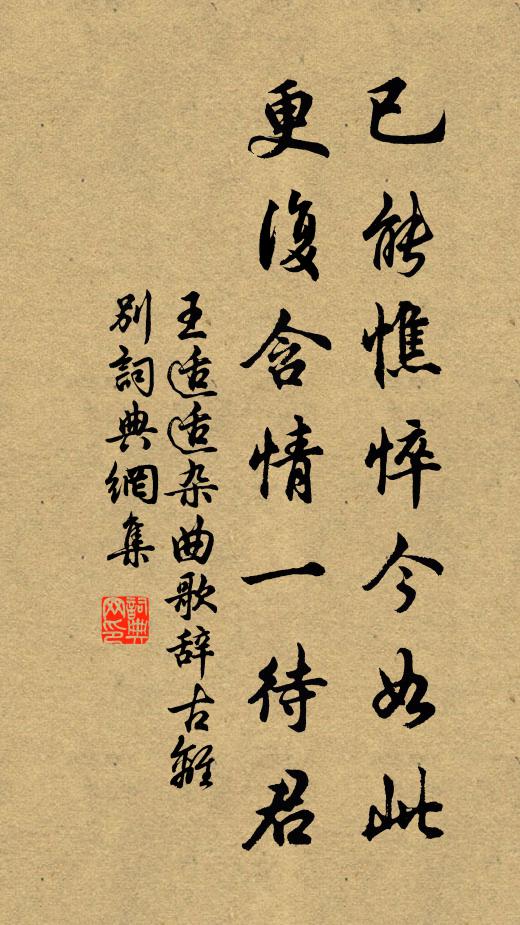 已能憔悴今如此
更復含情一待君
王适适杂曲歌辞古離
別詞典網集
詞典
网印